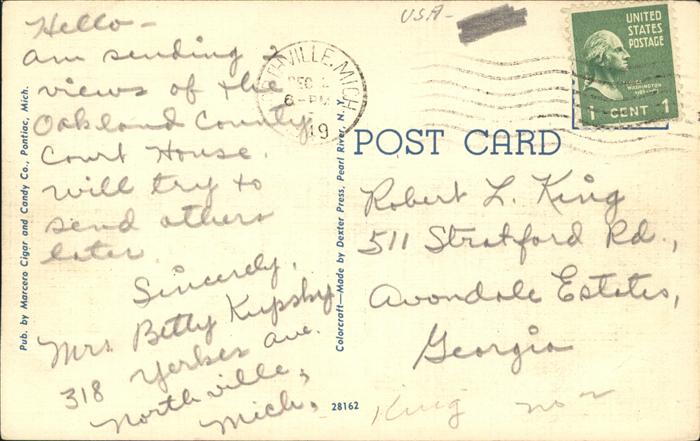 Hello-
am sending 2
views of the
Oakland County
Court House.
will try to
send others
later.
Sincerely,
Mrs Betty Kupsky
318 Yerkes Ave.
Northville,
Mich.
Pub. by Marcero Cigar and Candy Co., Pontiac, Mich.
Colorcraft—Made by Dexter Press, Pearl River, N.Y.
28162
USA-
VILLE, MICH
DEC
6-PM
19
UNITED
STATES
POSTAGE
WASHINGTON
1 CENT 1
POST CARD
Robert L. King
511 Stratford Rd.,
Avondale Estates,
Georgia
King